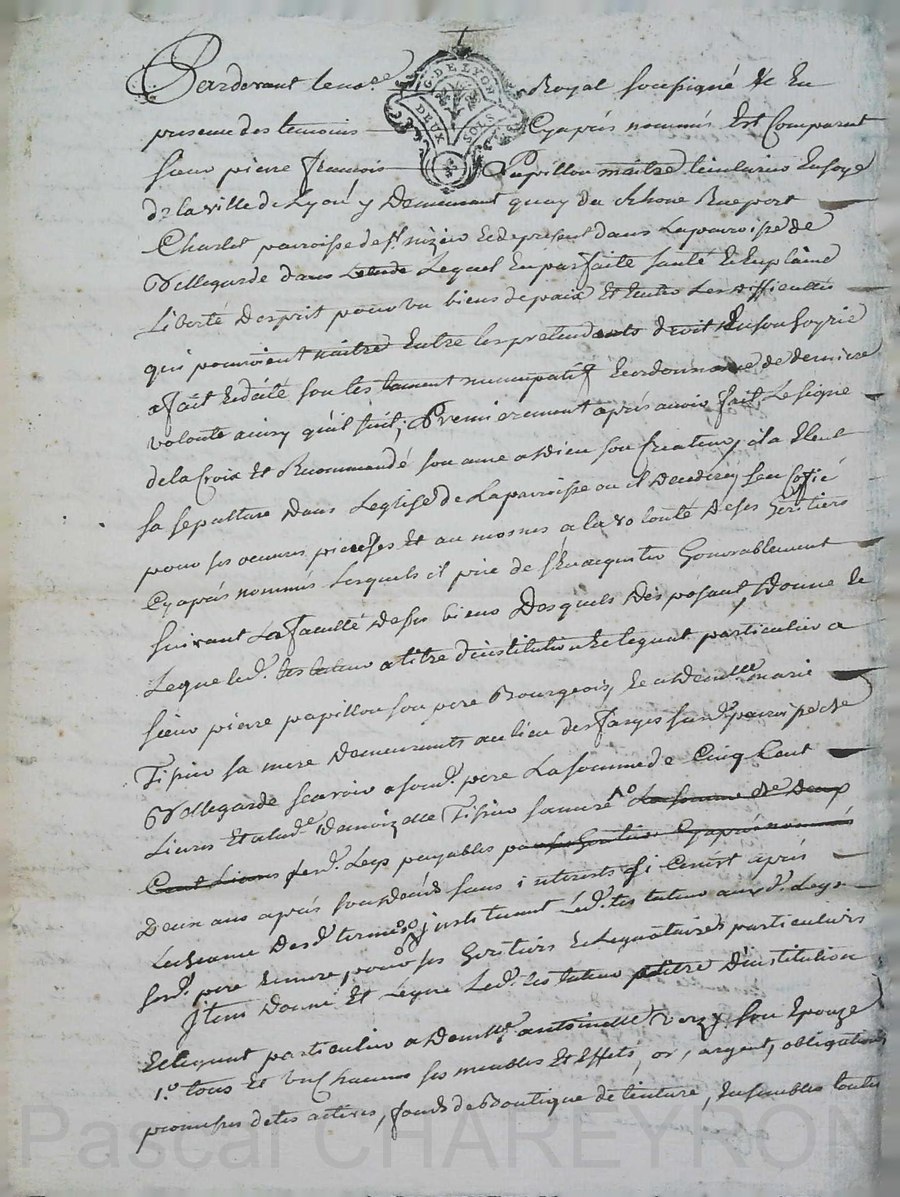 Pardevant le no.re Royal soussigné & En
presence des temoins Cyaprés nommés Est Comparu
sieur pierre francois Papillon maitre teinturier En soye
G. DE LYON
DEUX SOLS
de la ville de Lyon y Demeurant quay du Rhone Rue port
Charlet parroisse de st nizier Et de present dans La parroisse de
Vellegarde dans Lequel En parfaite santé Et En plaine
Liberté Desprit pour bien de paix Et Eviter Les difficultés
qui pourroient naitre Entre les pretendants droit En son hoyrie
a fait Et dicté son testament nuncupatif Et ordonnance de derniere
volonte ainsy qu'il suit, Premierement aprés avoir fait Le signe
de la Croix Et Recommandé son ame a Dieu son Createur, il a Eleut
sa sepulture Dans L'eglise de La parroisse ou il Decedera,
pour ses oeuvres pieuses Et aumosnes a la volonté De ses heritiers
Cyaprés nommés Lesquels il prie de s'En acquitter honnorablement
suivant La faculté De ses biens Desquels Disposant, Donne Et
Legue led. testateur a titre d'institution Et legat particulier a
sieur pierre papillon son pere Bourgeois, Et a Demlle marie
Tissier sa mere Demeurants au lieu des farges susd. parroisse de
Vellegarde scavoir a sond. pere La somme de Cinq Cent
Livres Et a lad. Demoizelle Tissier sa mere La somme de Deux
Cent Livres Led. Legs payables par Cyaprés nommé
Deux ans aprés son Decés sans interests si Ce n'est aprés
Lecheance Desd. termes, instituant Led. testateur auxd. Legs
sesd. pere Et mere, pour ses heritiers Et Legataires particuliers
Item Donne Et Legue Led. testateur a titre D'institution
Et legat particulier a Demlle antoinette Verzy son Epouze
1.o tous Et un Chacuns ses meubles Et Effets, or, argent, obligations
promesses dettes actives, fonds de Boutique de teinture, Ensembles toutes
Pascal CHAREYRON